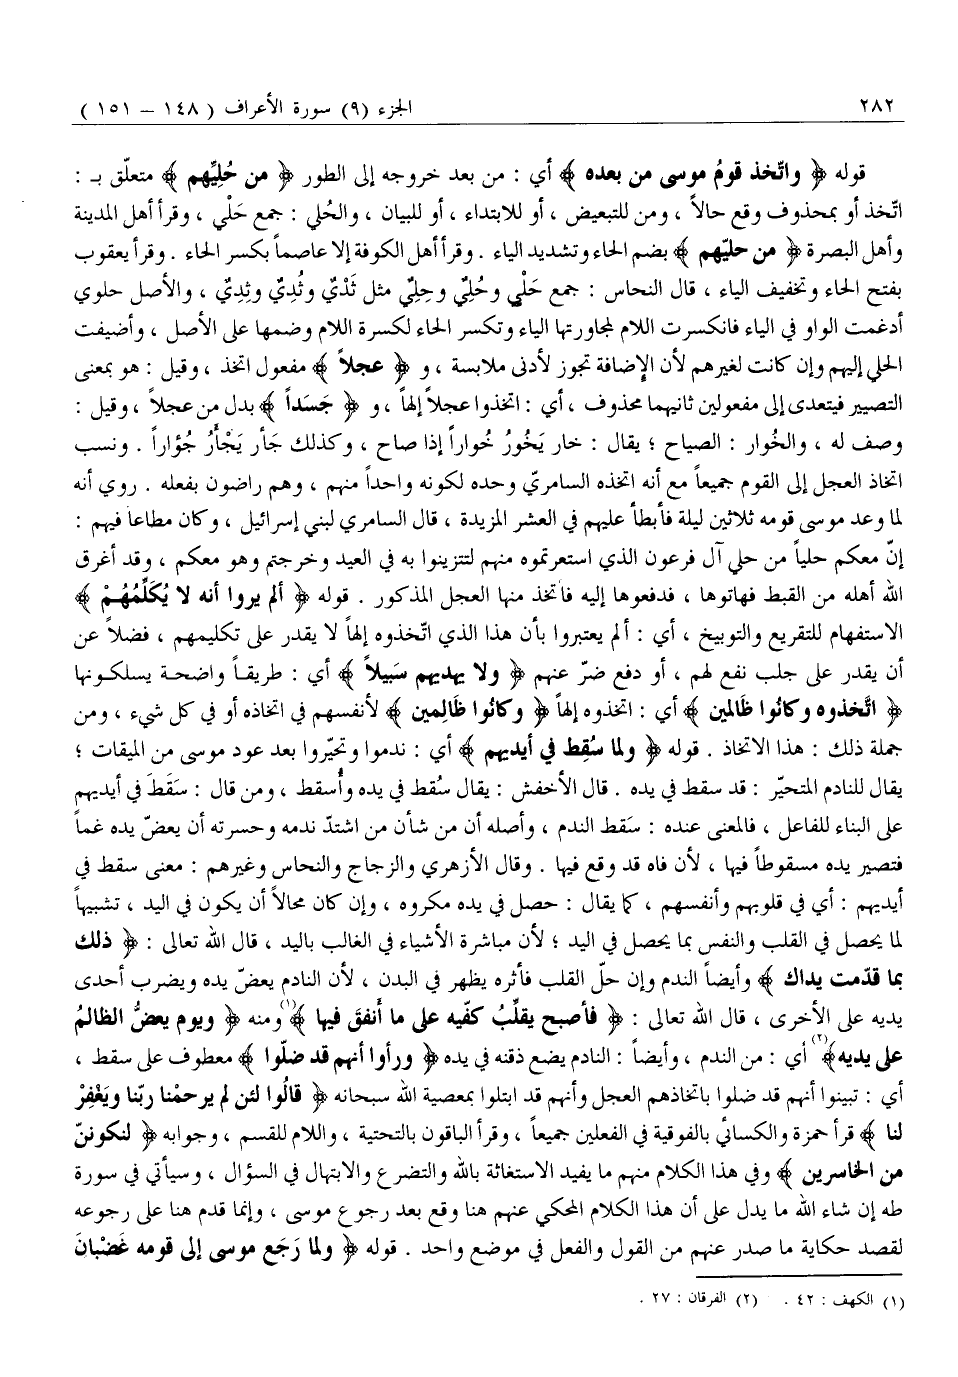 ٢٨٢
الجزء (٩) سورة الأعراف ( ١٤٨ – ١٥١ )
قوله ﴿ واتّخذ قومُ موسى من بعده ﴾ أي : من بعد خروجه إلى الطور ﴿ من حُلِيِّهم ﴾ متعلّق بـ :
اتّخذ أو بمحذوف وقع حالاً ، ومن للتبعيض ، أو للابتداء ، أو للبيان ، والحُلي : جمع حَلْي ، وقرأ أهل المدينة
وأهل البصرة ﴿ من حليّهم ﴾ بضم الحاء وتشديد الياء . وقرأ أهل الكوفة إلا عاصماً بكسر الحاء . وقرأ يعقوب
بفتح الحاء وتخفيف الياء ، قال النحاس : جمع حَلْيٍ وحُلِيٌّ وحِلِيٌّ مثل ثَدْيٌ وثُدِيٌّ وثِدِيٌّ ، والأصل حلوي
أدغمت الواو في الياء فانكسرت اللام لمجاورتها الياء وتكسر الحاء لكسرة اللام وضمها على الأصل ، وأضيفت
الحلي إليهم وإن كانت لغيرهم لأن الإضافة تجوز لأدنى ملابسة ، و ﴿ عجلاً ﴾ مفعول اتخذ ، وقيل : هو بمعنى
التصيير فيتعدى إلى مفعولين ثانيهما محذوف ، أي : اتخذوا عجلاً إلهاً ، و ﴿ جَسَداً ﴾ بدل من عجلاً ، وقيل :
وصف له ، والخُوار : الصياح ؛ يقال : خار يَخُورُ خُواراً إذا صاح ، وكذلك جَأر يَجْأَرُ جُؤَاراً . ونسب
اتخاذ العجل إلى القوم جميعاً مع أنه اتخذه السامريّ وحده لكونه واحداً منهم ، وهم راضون بفعله . روي أنه
لما وعد موسى قومه ثلاثين ليلة فأبطأ عليهم في العشر المزيدة ، قال السامري لبني إسرائيل ، وكان مطاعاً فيهم :
إنّ معكم حلياً من حلي آل فرعون الذي استعرتموه منهم لتتزينوا به في العيد وخرجتم وهو معكم ، وقد أغرق
الله أهله من القبط فهاتوها ، فدفعوها إليه فاتخذ منها العجل المذكور . قوله ﴿ ألم يروا أنه لا يُكَلِّمُهُمْ ﴾
الاستفهام للتقريع والتوبيخ ، أي : ألم يعتبروا بأن هذا الذي اتّخذوه إلهاً لا يقدر على تكليمهم ، فضلاً عن
أن يقدر على جلب نفع لهم ، أو دفع ضرّ عنهم ﴿ ولا يهديهم سَبيلاً ﴾ أي : طريقاً واضحة يسلكونها
﴿ اتَّخذوه وكانُوا ظَالمين ﴾ أي : اتخذوه إلهاً ﴿ وكانُوا ظَالِمين ﴾ لأنفسهم في اتخاذه أو في كل شيء ، ومن
جملة ذلك : هذا الاتخاذ . قوله ﴿ ولما سُقِط في أيديهم ﴾ أي : ندموا وتحيّروا بعد عود موسى من الميقات ؛
يقال للنادم المتحيّر : قد سقط في يده . قال الأخفش : يقال سُقط في يده وأُسقط ، ومن قال : سَقَطَ في أيديهم
على البناء للفاعل ، فالمعنى عنده : سَقط الندم ، وأصله أن من شأن من اشتدّ ندمه وحسرته أن يعضّ يده غماً
فتصير يده مسقوطاً فيها ، لأن فاه قد وقع فيها . وقال الأزهري والزجاج والنحاس وغيرهم : معنى سقط في
أيديهم : أي في قلوبهم وأنفسهم ، كما يقال : حصل في يده مكروه ، وإن كان محالاً أن يكون في اليد ، تشبيهاً
لما يحصل في القلب والنفس بما يحصل في اليد ؛ لأن مباشرة الأشياء في الغالب باليد ، قال الله تعالى : ﴿ ذلك
بما قدّمت يداك ﴾ وأيضاً الندم وإن حلّ القلب فأثره يظهر في البدن ، لأن النادم يعضّ يده ويضرب أحدى
يديه على الأخرى ، قال الله تعالى : ﴿ فأصبح يقلِّبُ كفّيه على ما أَنفقَ فيها ﴾(١) ومنه ﴿ ويوم يعضُّ الظالمُ
على يديه ﴾(٢) أي : من الندم ، وأيضاً : النادم يضع ذقنه في يده ﴿ ورأوا أنهم قد ضلّوا ﴾ معطوف على سقط ،
أي : تبينوا أنهم قد ضلوا باتخاذهم العجل وأنهم قد ابتلوا بمعصية الله سبحانه ﴿ قالُوا لئن لم يرحمْنا ربّنا ويَغْفِرْ
لنا ﴾ قرأ حمزة والكسائي بالفوقية في الفعلين جميعاً ، وقرأ الباقون بالتحتية ، واللام للقسم ، وجوابه ﴿ لنكوننّ
من الخاسرين ﴾ وفي هذا الكلام منهم ما يفيد الاستغاثة بالله والتضرع والابتهال في السؤال ، وسيأتي في سورة
طه إن شاء الله ما يدل على أن هذا الكلام المحكي عنهم هنا وقع بعد رجوع موسى ، وإنما قدم هنا على رجوعه
لقصد حكاية ما صدر عنهم من القول والفعل في موضع واحد . قوله ﴿ ولما رَجَع موسى إلى قومه غَضْبانَ
(١) الكهف : ٤٢ . (٢) الفرقان : ٢٧ .